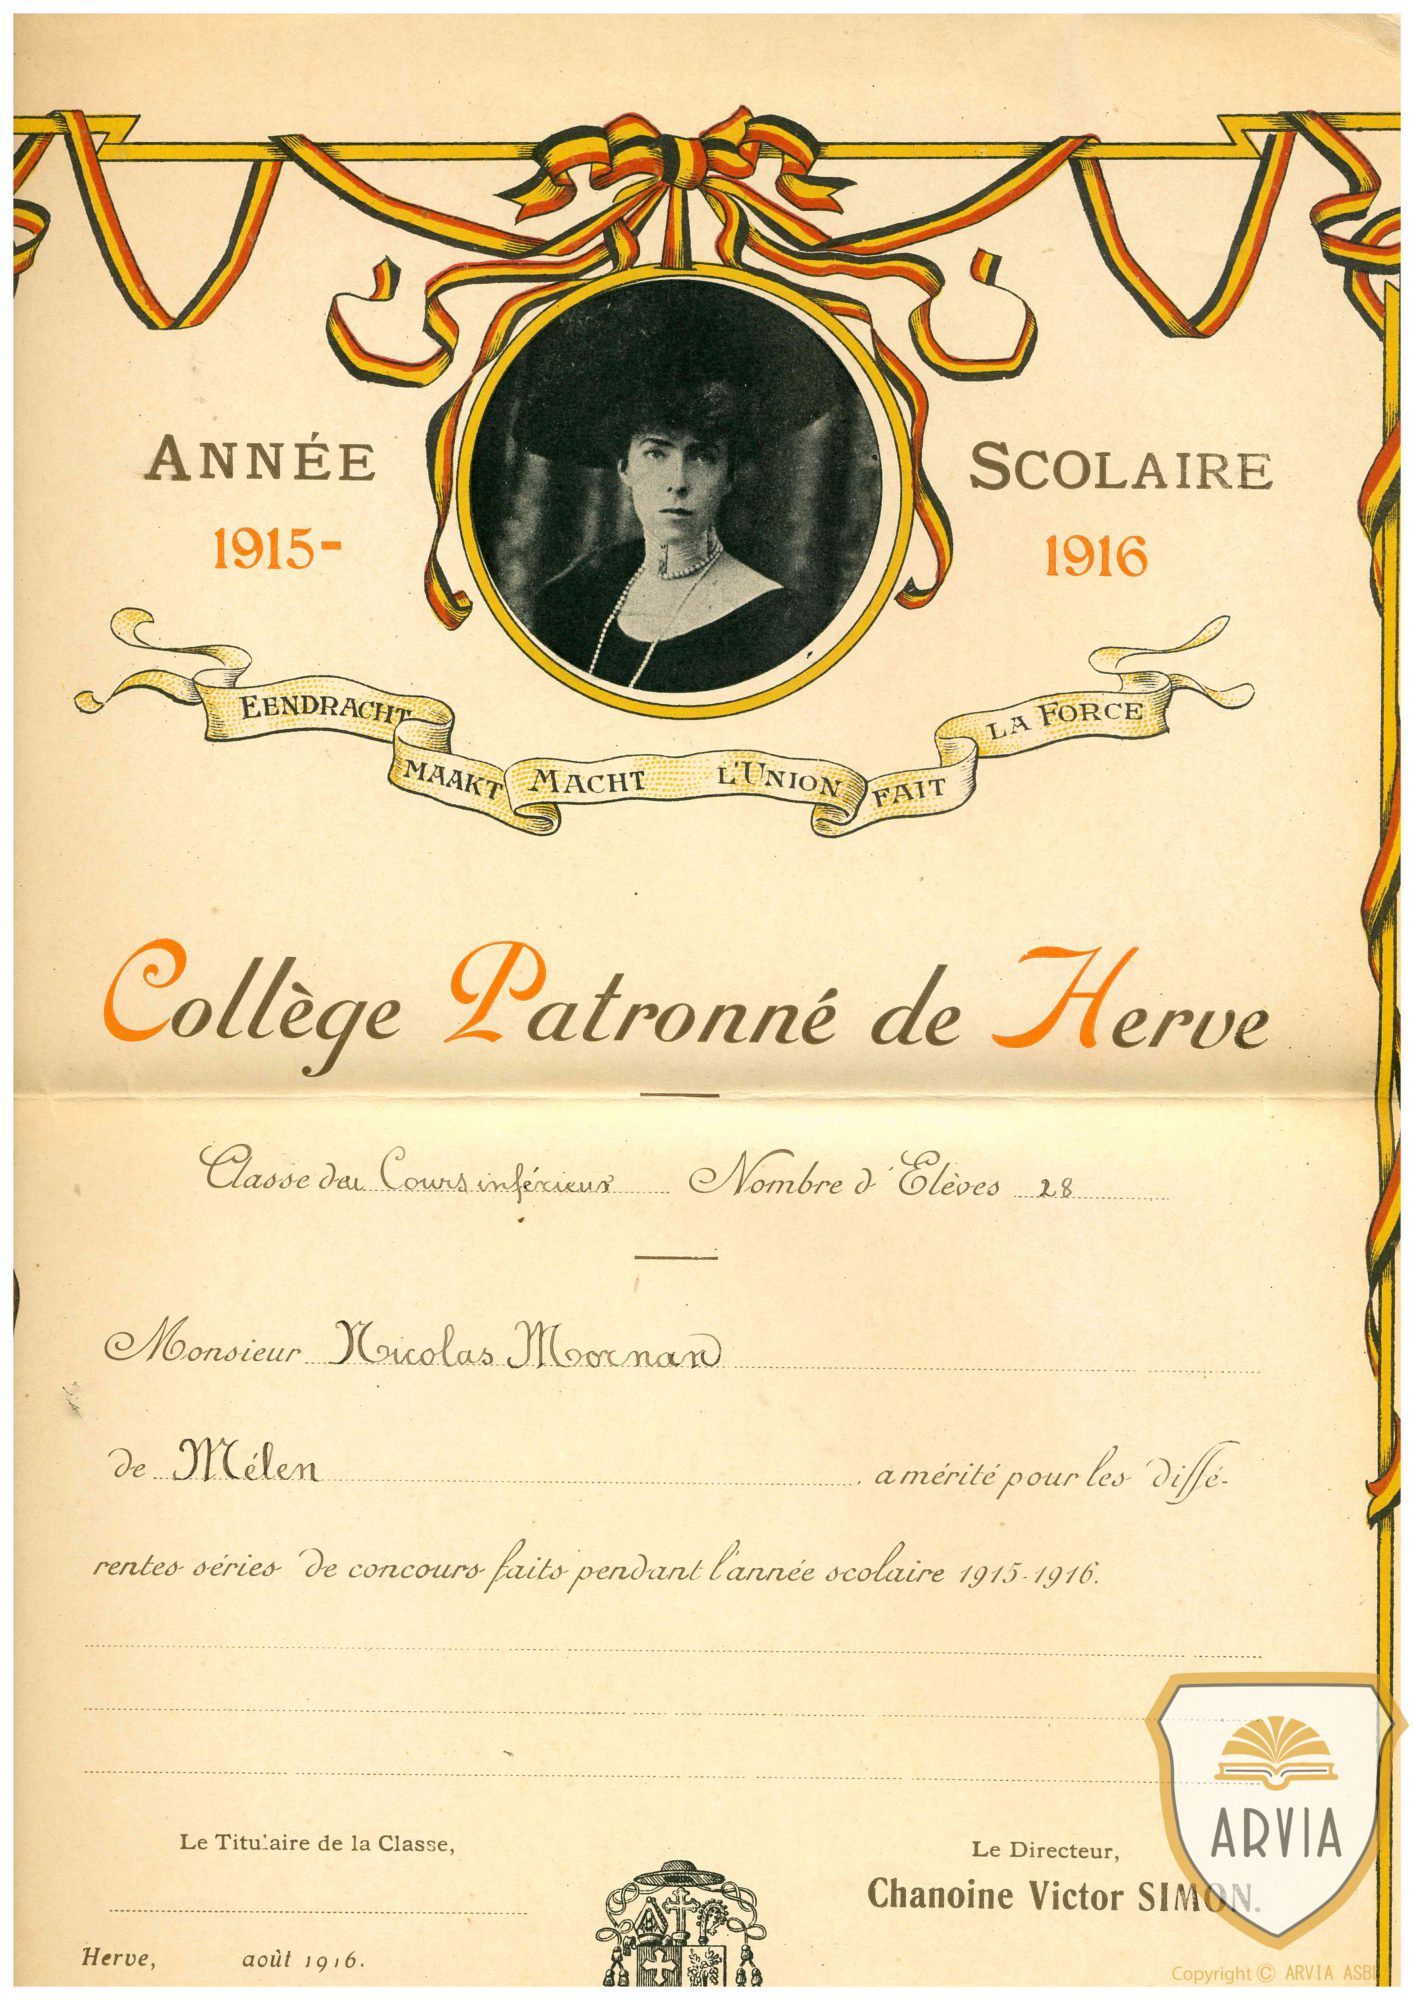 ANNÉE SCOLAIRE
1915- 1916
EENDRACHT MAAKT MACHT L'UNION FAIT LA FORCE
Collège Patronné de Herve
Classe du Cours inférieur Nombre d'Elèves 28
Monsieur Nicolas Mornard
de Mélen a mérité pour les diffé-
rentes séries de concours faits pendant l'année scolaire 1915-1916.
Le Titulaire de la Classe,
Le Directeur,
Chanoine Victor SIMON.
Herve, août 1916.
ARVIA
Copyright © ARVIA ASBL